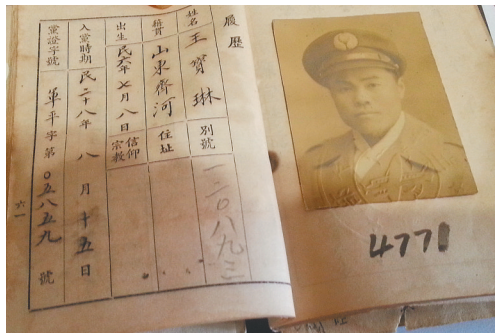 履歷
姓名 王寶琳 別號 一二〇八九三
籍貫 山東齊河 住址
出生 民六年七月八日 信仰宗教
入黨時期 民二十八年八月十五日
黨證字號 軍平字第〇五八五九號
六一
4771